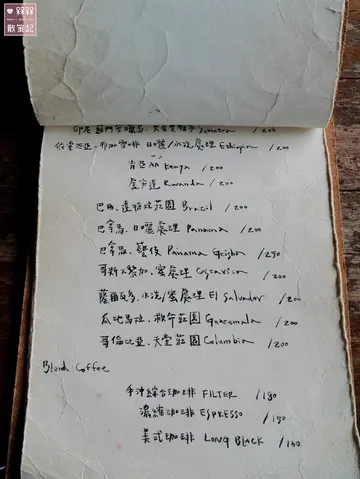 ♥ 槑槑
散策記
印尼 蘇門答臘島 Sumatra /200
衣索比亞 日曬/水洗處理 Ethiopia /200
肯亞AA Kenya /200
盧安達 Rwanda /200
巴西 莊園 Brazil /200
巴拿馬 日曬處理 Panama /200
巴拿馬 藝伎 Panama Geisha /250
哥斯大黎加 蜜處理 Costarica /200
薩爾瓦多 水洗/蜜處理 El Salvador /200
瓜地馬拉 莊園 Guatemala /200
哥倫比亞 天堂莊園 Columbia /200
Blend Coffee
手沖綜合咖啡 FILTER /180
濃縮咖啡 ESPRESSO /150
美式咖啡 LONG BLACK /160